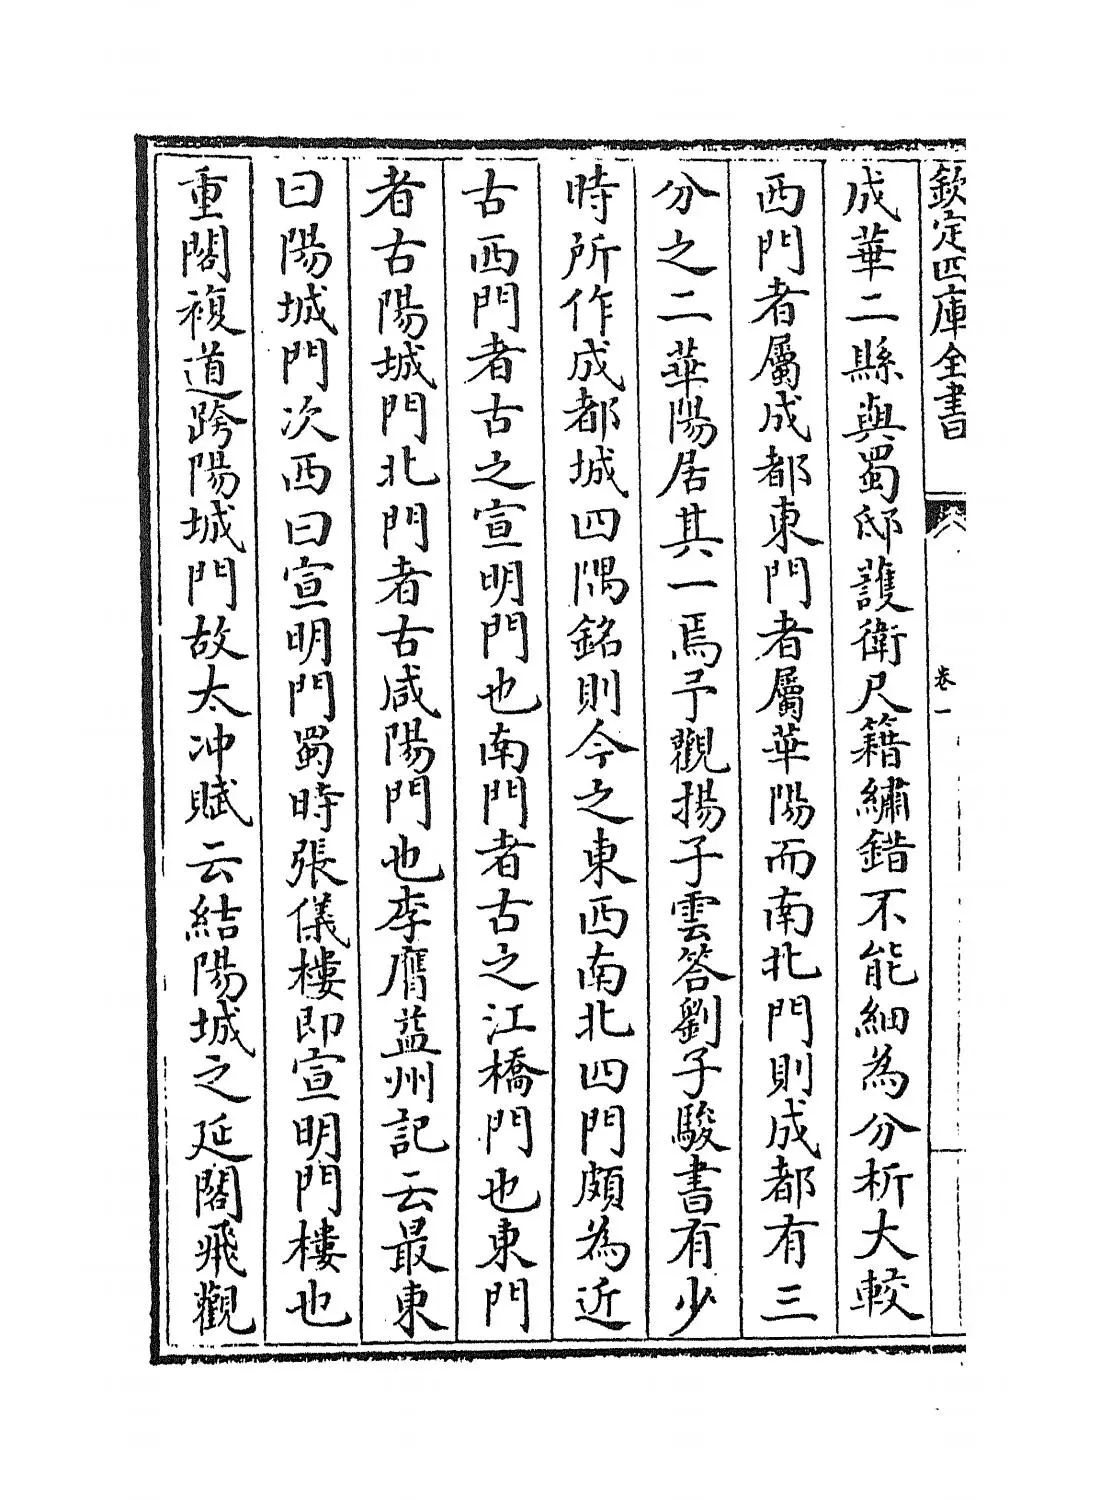 欽定四庫全書
卷一
成華二縣與蜀邸護衛尺籍繡錯不能細為分析大較
西門者屬成都東門者屬華陽而南北門則成都有三
分之二華陽居其一焉予觀揚子雲答劉子駿書有少
時所作成都城四隅銘則今之東西南北四門頗為近
古西門者古之宣明門也南門者古之江橋門也東門
者古陽城門北門者古咸陽門也李膺益州記云最東
曰陽城門次西曰宣明門蜀時張儀樓即宣明門樓也
重閣複道跨陽城門故太冲賦云結陽城之延閣飛觀